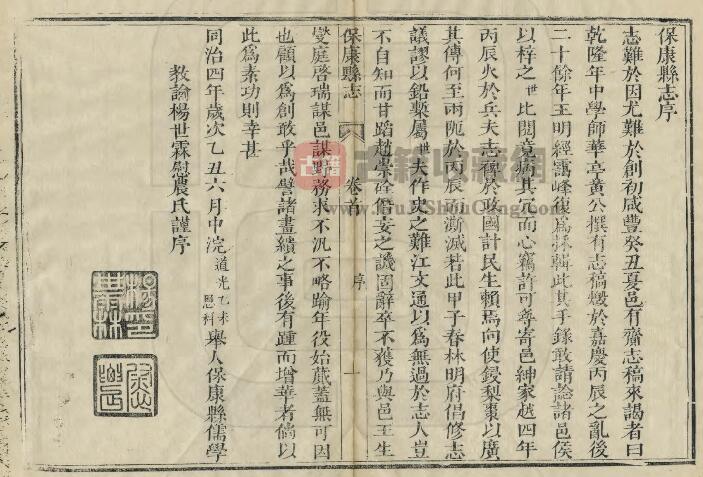 保康縣志序
志難於因尤難於創初咸豐癸丑夏邑有齎志稿來謁者曰
乾隆年中學師華亭黃公撰有志稿燬於嘉慶丙辰之亂後
二十餘年王明經靄峰復為採輯此其手錄敢請諗諸邑侯
以梓之世比閱竟病其冗而心竊許可尋寄邑紳家越四年
丙辰火於兵夫志傳於政國計民生賴焉向使鋟梨棗以廣
其傳何至兩阨於丙辰而澌滅若此甲子春林明府倡修志
議謬以鉛槧屬世夫作史之難江文通以為無過於志人豈
不自知而甘蹈僭妄之譏固辭卒不獲乃與邑王生
保康縣志
卷首
序
一
燮庭啓瑞謀邑謀野務求不汎不略踰年役始蕆蓋無可因
也顧以為創敢乎哉譬諸畫繢之事後有踵而增華者倘以
此為素功則幸甚
同治四年歲次乙丑六月中浣道光乙未恩科舉人保康縣儒學
教諭楊世霖慰農氏謹序
古籍